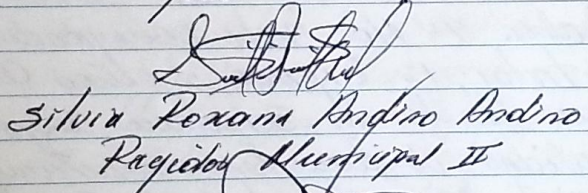 Silvia Roxana Andino Andino
Regidor Municipal II